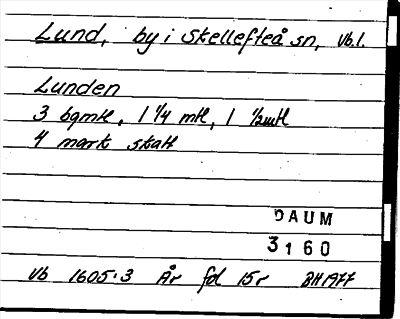 Lund, by i Skellefteå sn, Vb.l.
Lunden
3 bgmtl, 1 1/4 mtl, 1 1/2mtl
4 mark skatt
DAUM
3160
Vb 1605:3 År fol 15r BH1977